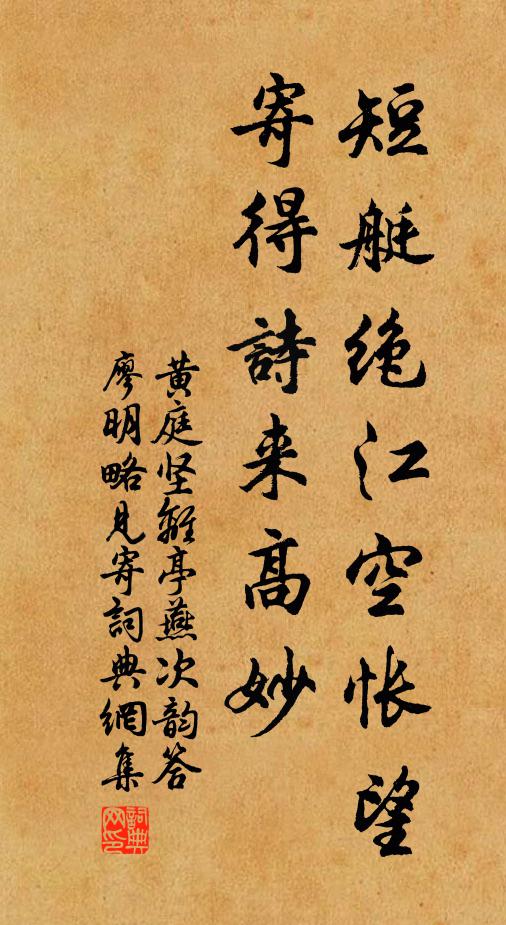 短艇绝江空帐望
寄得詩来高妙
黄庭坚離亭燕次韵答
廖明略见寄詞典網集
詞典
网印